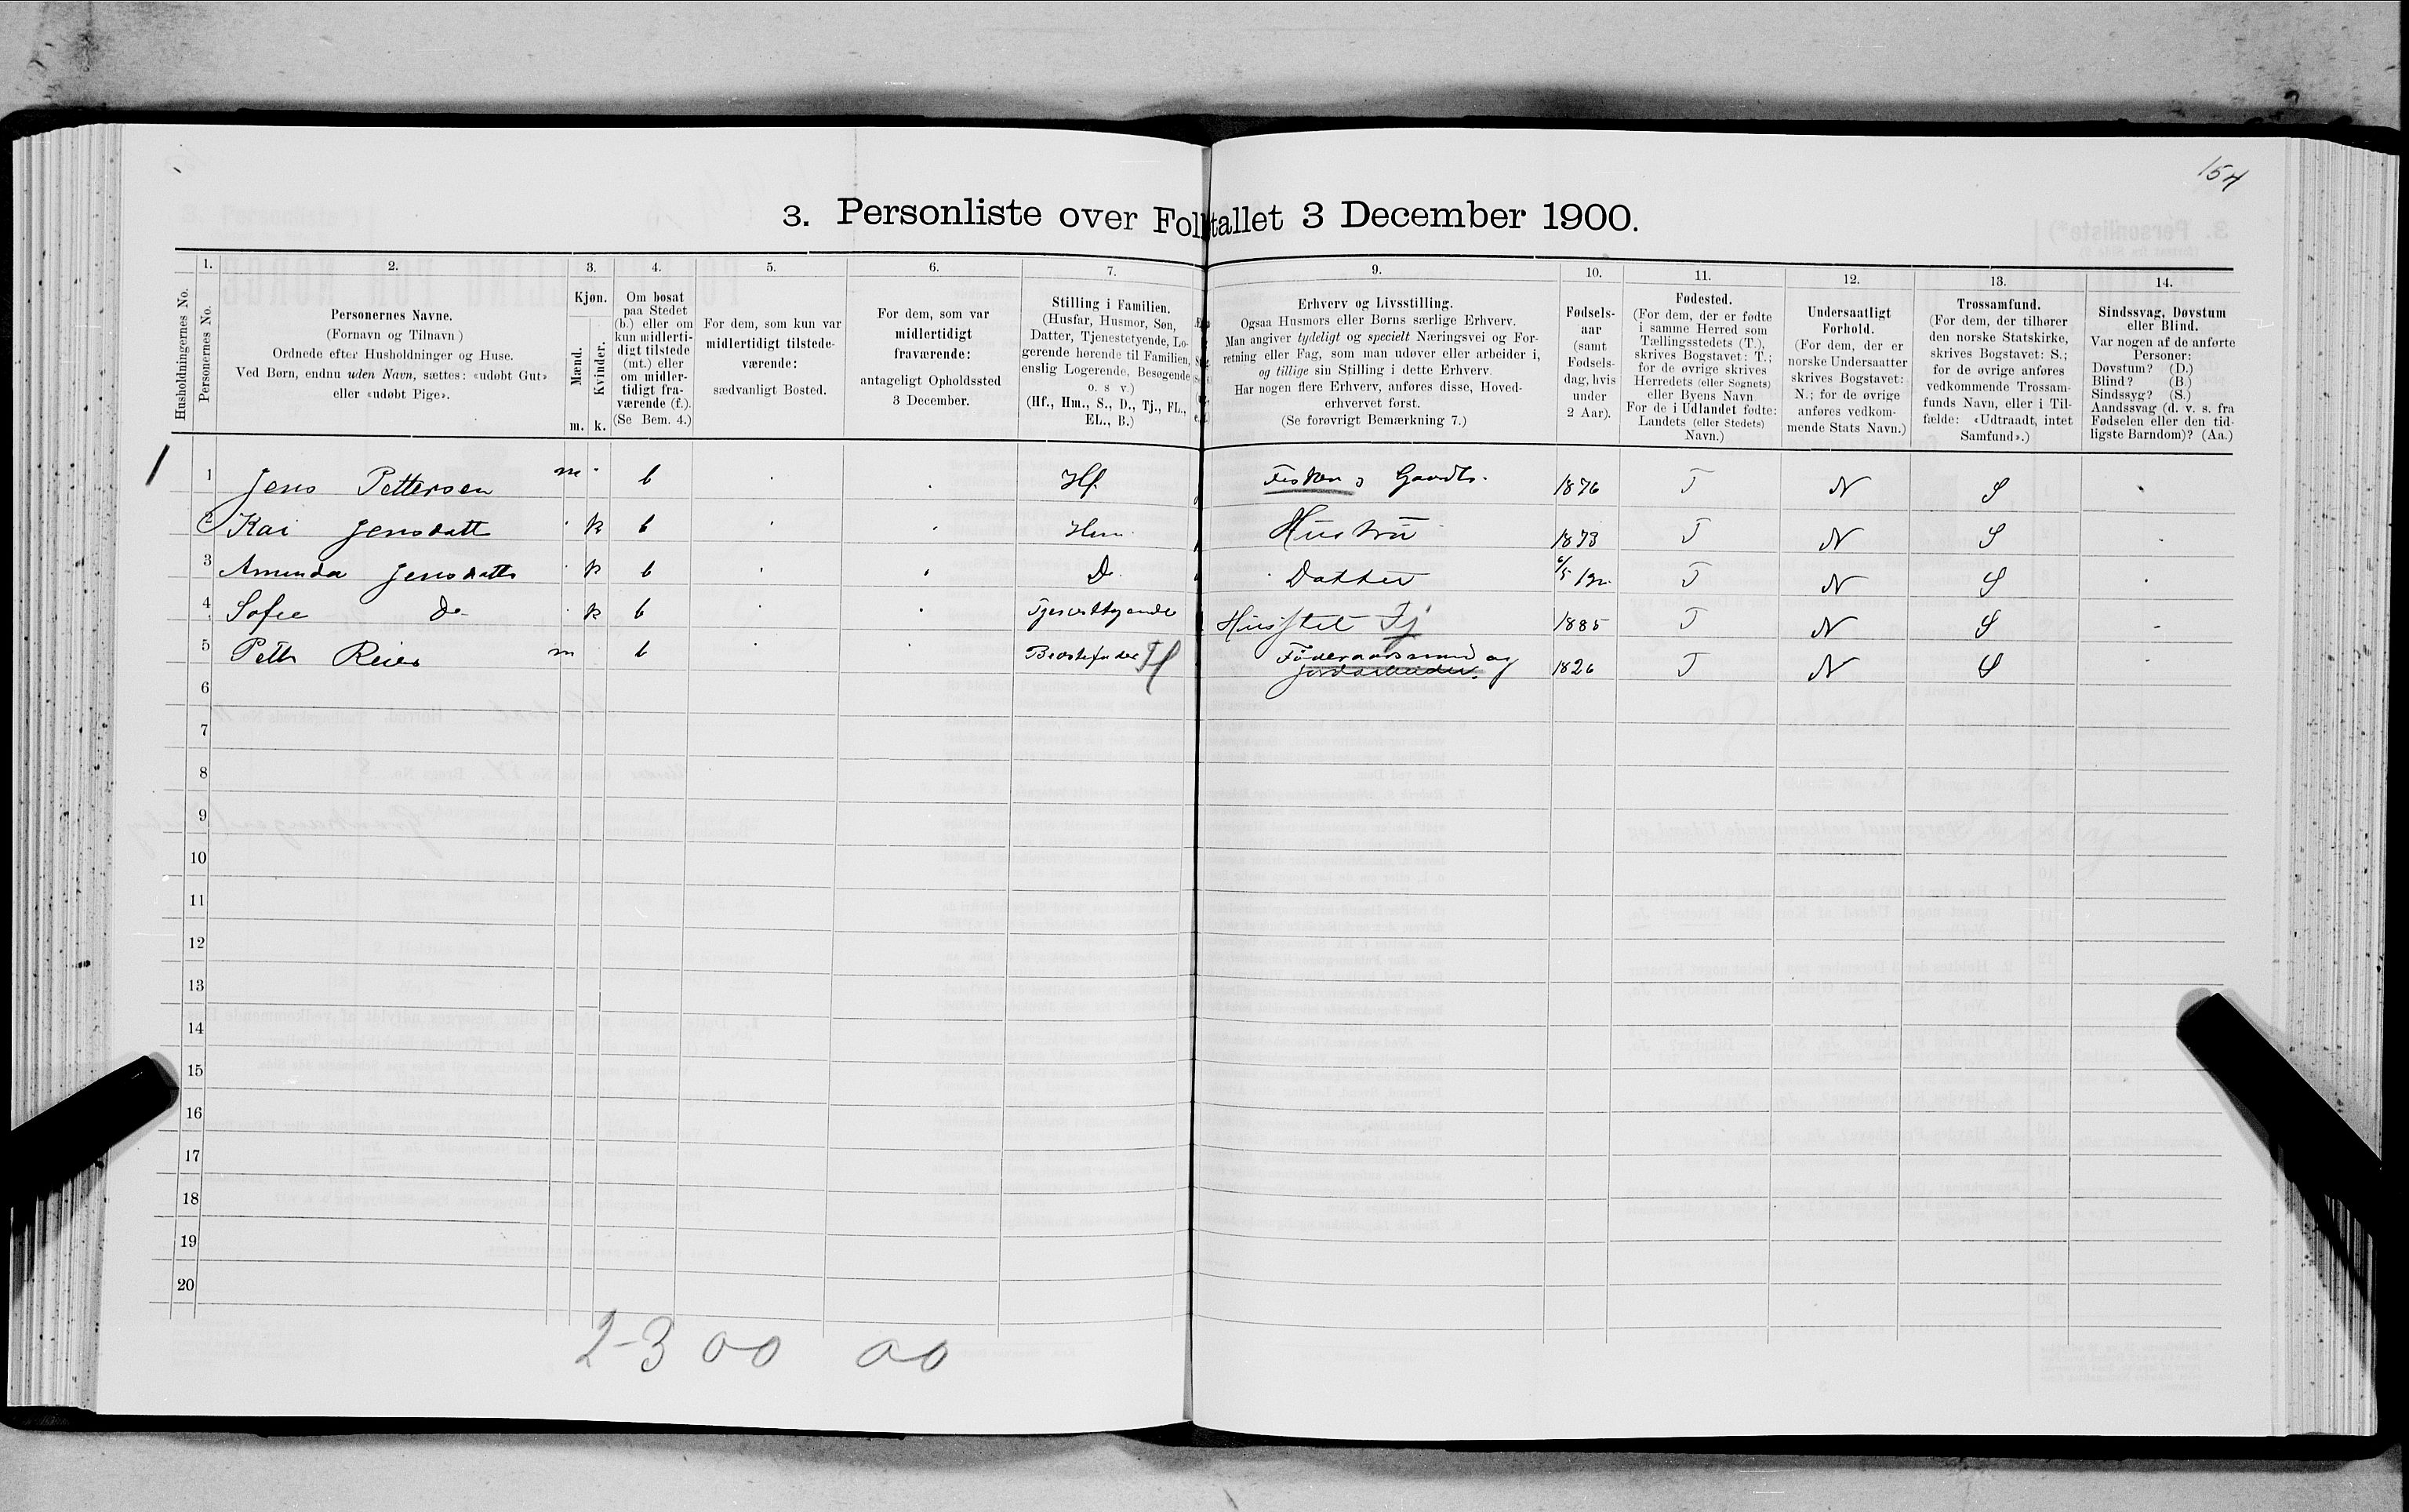 154
3. Personliste over Folketallet 3 December 1900.
1. 2. 3. 4. 5. 6. 7. 9. 10. 11. 12. 13. 14.
Husholdningernes No.
Personernes No.
Personernes Navne.
(Fornavn og Tilnavn)
Ordnede efter Husholdninger og Huse.
Ved Børn, endnu uden Navn, sættes: «udøbt Gut»
eller «udøbt Pige».
Kjøn.
Mænd.
Kvinder.
m. k.
Om bosat
paa Stedet
(b.) eller om
kun midlerti-
digt tilstede
(mt.) eller
om midler-
tidigt fra-
værende (f.).
(Se Bem. 4.)
For dem, som kun var
midlertidigt tilstede-
værende:
sædvanligt Bosted.
For dem, som var
midlertidigt
fraværende:
antageligt Opholdssted
3 December.
Stilling i Familien.
(Husfar, Husmor, Søn,
Datter, Tjenestetyende, Lo-
gerende hørende til Familien,
enslig Logerende, Besøgende
o. s v.)
(Hf., Hm., S., D., Tj., FL.,
EL., B.)
Erhverv og Livsstilling.
Ogsaa Husmors eller Børns særlige Erhverv.
Man angiver tydeligt og specielt Næringsvei og For-
retning eller Fag, som man udøver eller arbeider i,
og tillige sin Stilling i dette Erhverv.
Har nogen flere Erhverv, anføres disse, Hoved-
erhvervet først.
(Se forøvrigt Bemærkning 7.)
Fødsels-
aar
(samt
Fødsels-
dag, hvis
under
2 Aar).
Fødested.
(For dem, der er fødte
i samme Herred som
Tællingsstedets (T.),
skrives Bogstavet: T.;
for de øvrige skrives
Herredets (eller Sognets)
eller Byens Navn
For de i Udlandet fødte:
Landets (eller Stedets)
Navn.)
Undersaatligt
Forhold.
(For dem, der er
norske Undersaatter
skrives Bogstavet:
N.; for de øvrige
anføres vedkom-
mende Stats Navn.)
Trossamfund.
(For dem, der tilhører
den norske Statskirke,
skrives Bogstavet: S.;
for de øvrige anføres
vedkommende Trossam-
funds Navn, eller i Til-
fælde: «Udtraadt, intet
Samfund».)
Sindssvag, Døvstum
eller Blind.
Var nogen af de anførte
Personer:
Døvstum? (D.)
Blind? (B.)
Sindssyg? (S.)
Aandssvag (d. v. s. fra
Fødselen eller den tid-
ligste Barndom)? (Aa.)
1 1 Jens Pettersen m b Hf. Fisker Gaardb. 1876 T N S
2 Kai Jensdatt k b Hm Hustru 1873 T N S
3 Amunda Jensdatts k b D. Datter T N S
4 Sofie Do k b Tjenesttyende Husstel Tj 1885 T N S
5 Pette Reies m b Bedstefader Føderaadsmand og
jordarbeider. 1826 T N S
6
7
8
9
10
11
12
13
14
15
16
17
18
19
20
2-3 00 00